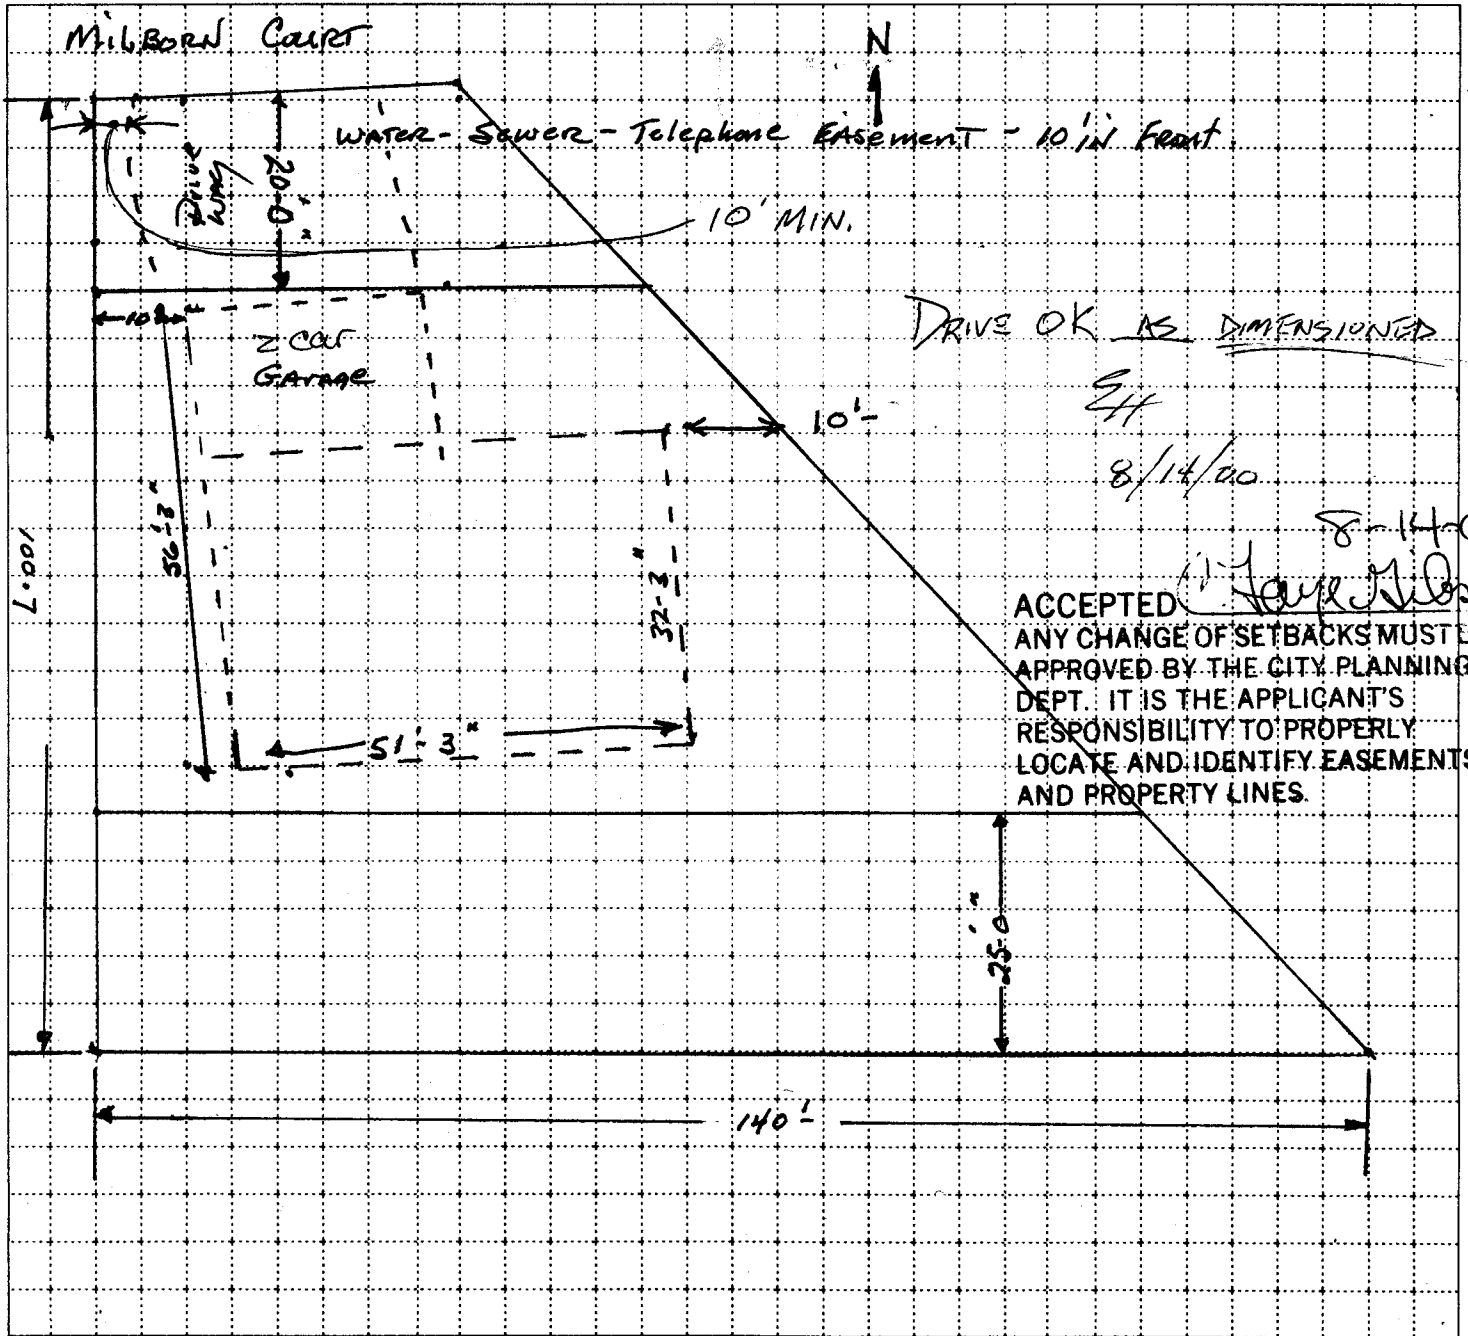 MILBORN COURT
N
WATER - SEWER - Telephone EASEMENT - 10' IN FRONT
DRIVE
WAY
20'-0"
10' MIN.
10'
2 car
GARAGE
DRIVE OK AS DIMENSIONED
EH
10'-
8/14/00
8-14-0
56'-3"
32'-3"
100.7
ACCEPTED C. Faye Gibs
ANY CHANGE OF SETBACKS MUST
APPROVED BY THE CITY PLANNING
DEPT. IT IS THE APPLICANT'S
RESPONSIBILITY TO PROPERLY
LOCATE AND IDENTIFY EASEMENTS
AND PROPERTY LINES.
51'-3"
25'-0"
140'-